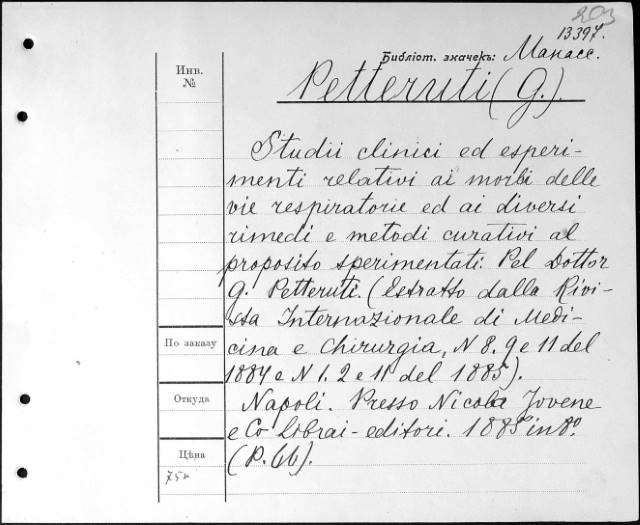 203
13397.
Библіот. значекъ: Манасс.
Инв.
№
Petteruti (G.).
Studii clinici ed esperi-
menti relativi ai morbi delle
vie respiratorie ed ai diversi
rimedi e metodi curativi al
proposito sperimentati: Pel Dottor
G. Petteruti. (Estratto dalla Rivi-
sta Internazionale di Medi-
cina e Chirurgia, N 8. 9 e 11 del
1884 e N 1. 2 e 11 del 1885).
Napoli. Presso Nicola Jovene
e Co Librai-editori. 1885 in 8º.
(P. 66).
По заказу
Откуда
Цѣна
75к